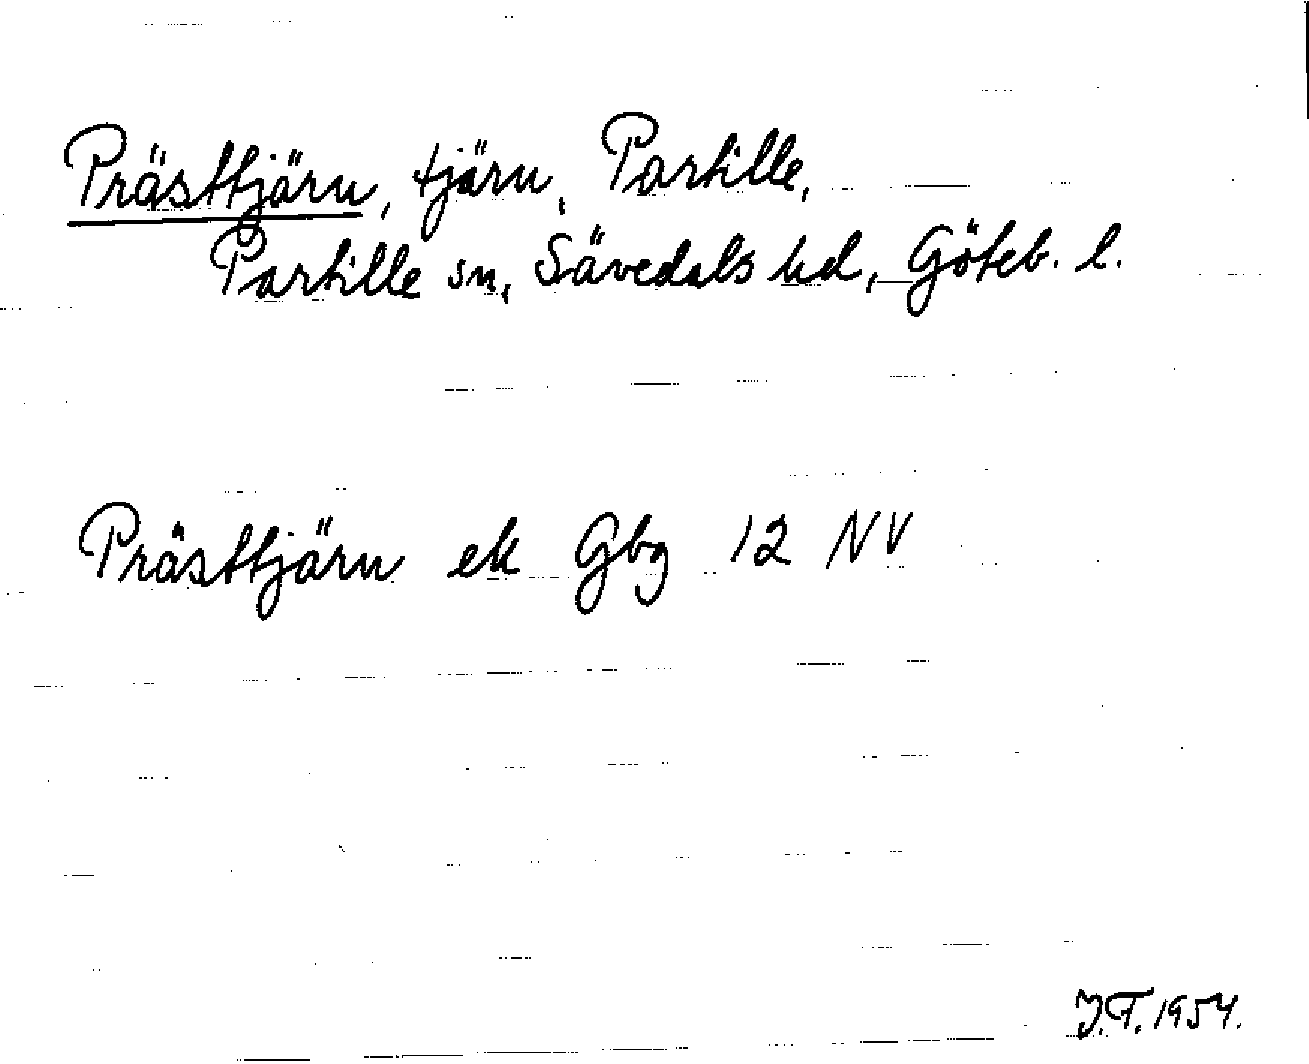 Prästtjärn, tjärn, Partille,
Partille sn, Sävedals hd, Göteb. l.
Prästtjärn ek Gbg 12 NV
J.T. 1954.